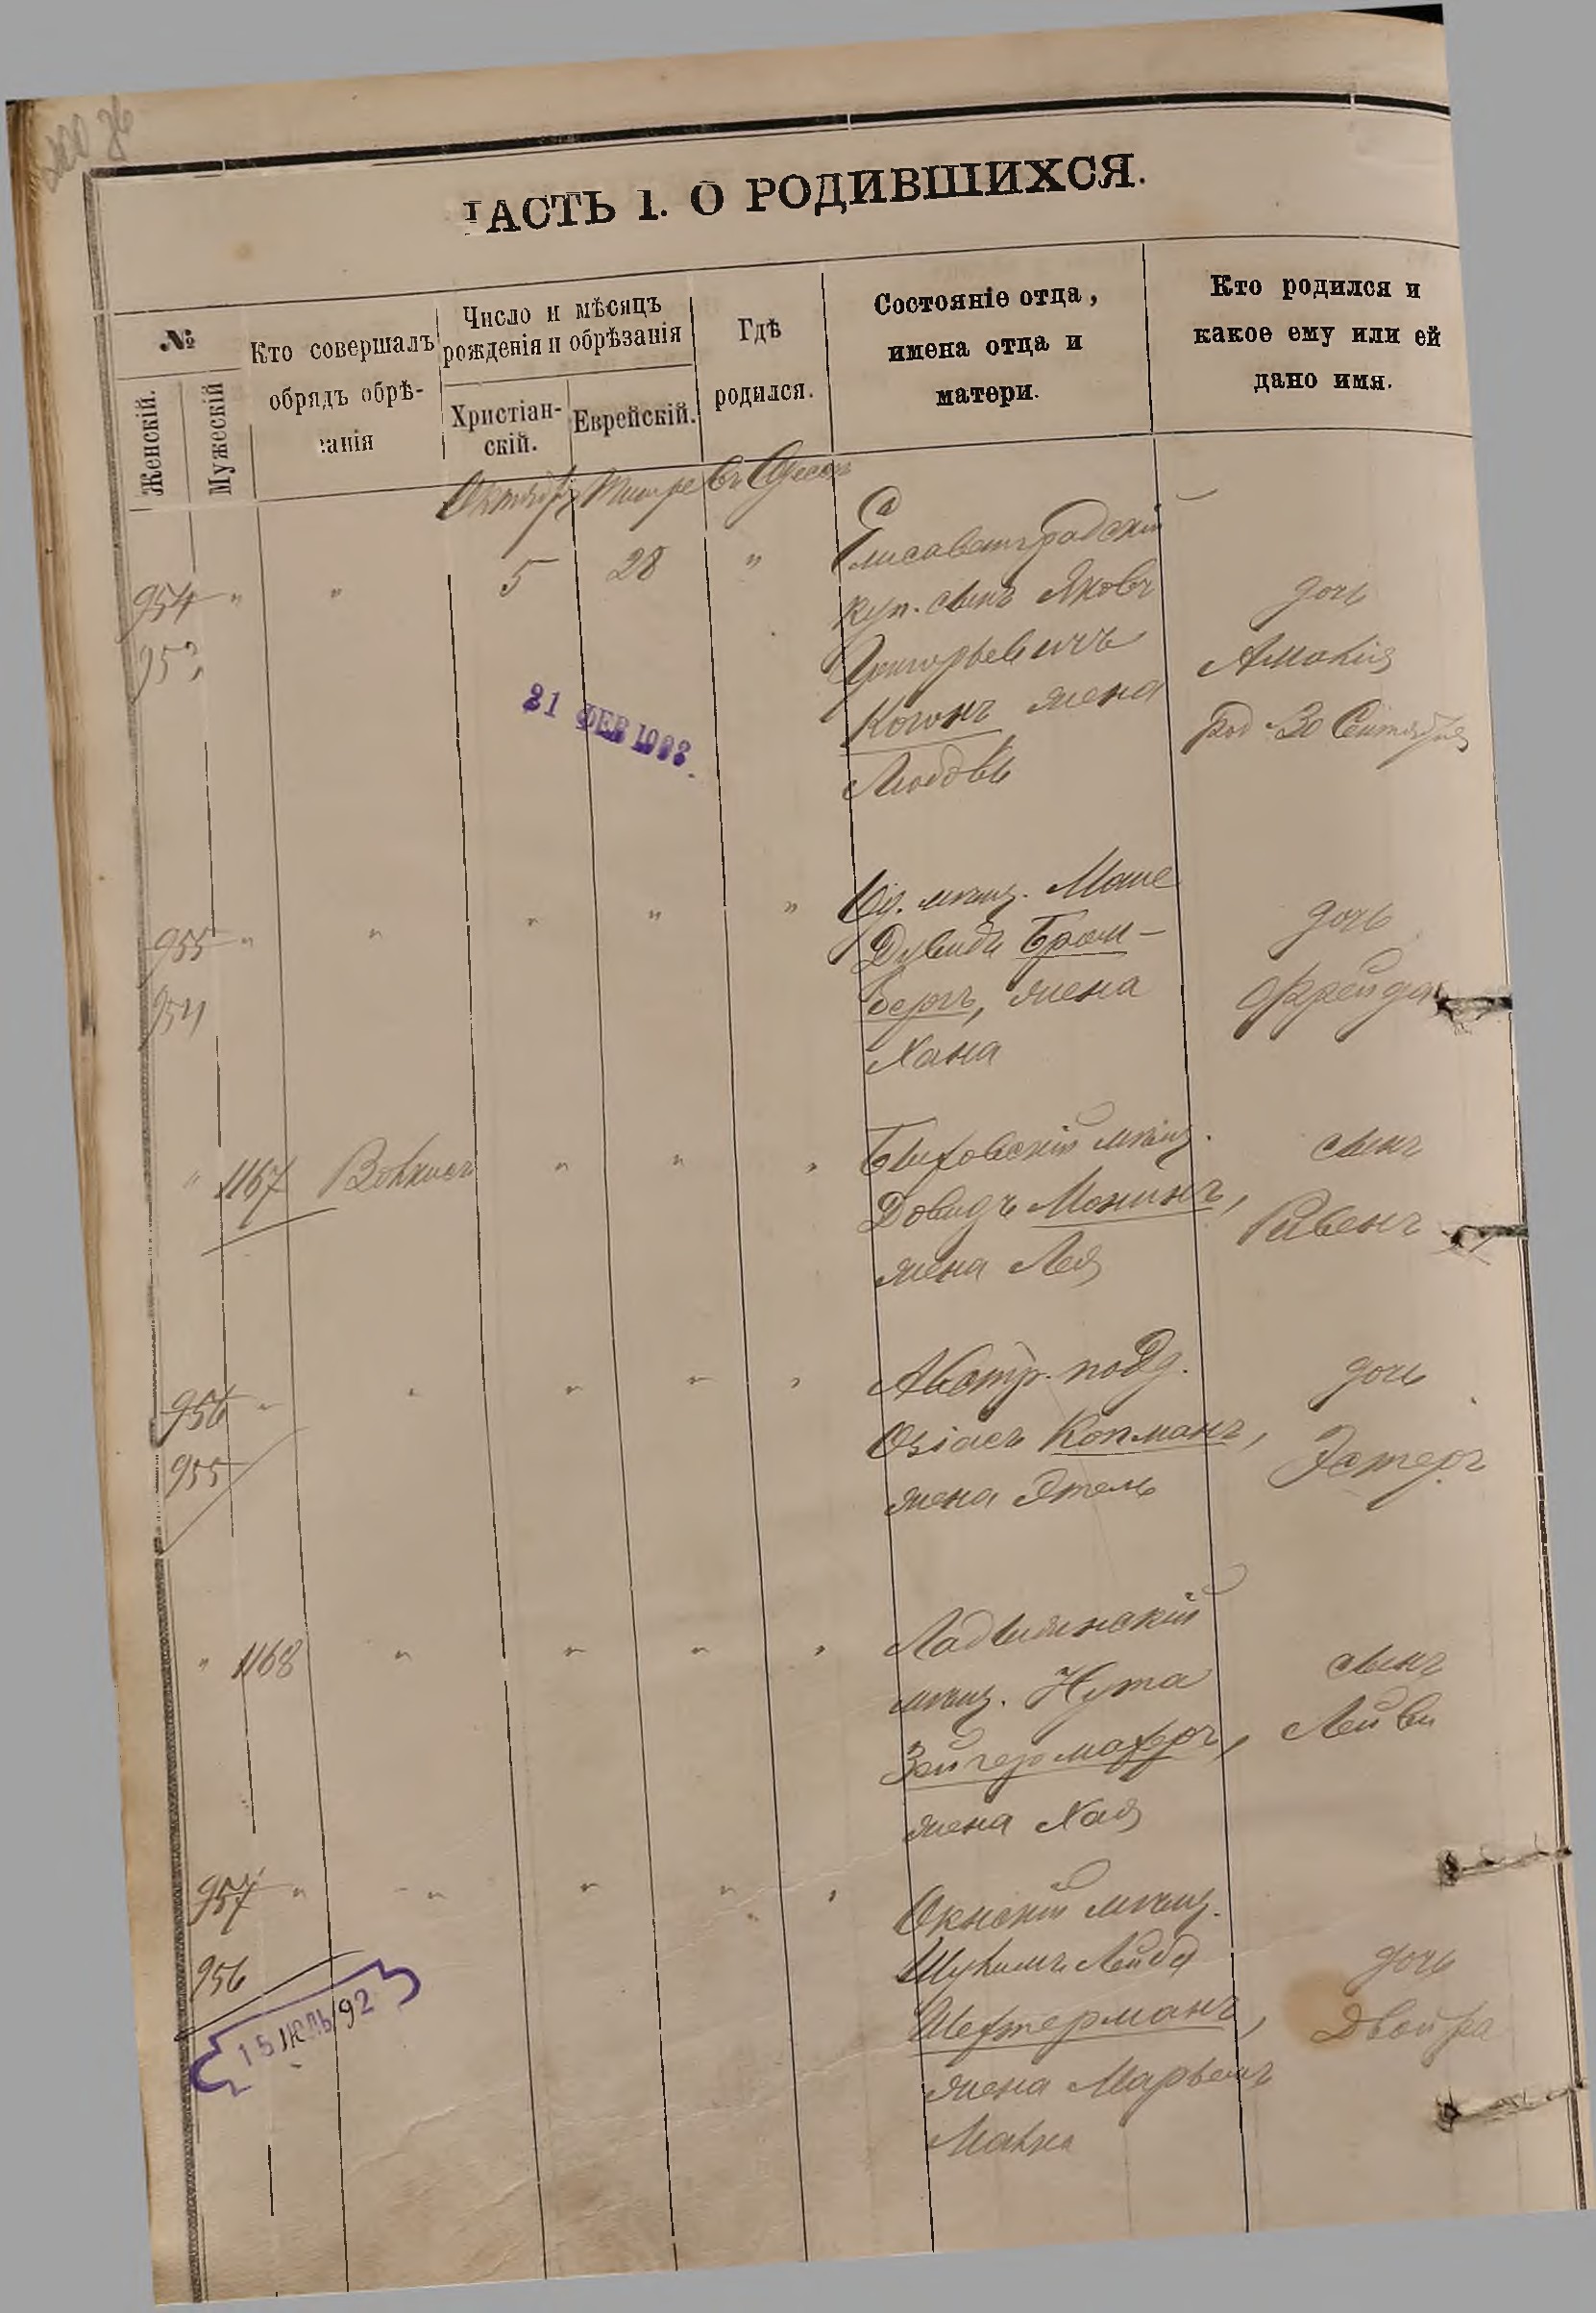 ЧАСТЬ 1. О РОДИВШИХСЯ.
№
Женскій.
Мужескій
Кто совершалъ
обрядъ обрѣ-
занія
Число и мѣсяцъ
рожденія и обрѣзанія
Христіан-
скій.
Еврейскій.
Гдѣ
родился.
Состояніе отца,
имена отца и
матери.
Кто родился и
какое ему или ей
дано имя.
Октября Тишре Въ Одессѣ
954 " " 5 28 "
953
Елисаветградскій
куп. сынъ Яковъ
Григорьевичъ
Когонъ жена
Любовь
дочь
Амалія
Род. 30 Сентября
21 ФЕВ
955 " " " " "
954
Од. мѣщ. Моше
Дувидъ Бром-
бергъ, жена
Хана
дочь
Фрейда
" 1167 " " "
Быховскій мѣщ.
Довидъ Монинъ,
жена Лея
сынъ
Рувенъ
956 " " " " "
955
Австр. подд.
Озіасъ Копманъ,
жена Этель
дочь
Эстеръ
" 1168 " " " "
Ладыжинскій
мѣщ. Нута
Зейгермахеръ,
жена Хая
сынъ
Лейви
957 " " " " "
956
Окнскій мѣщ.
Лейба
Шехтерманъ,
жена Марьемъ
дочь
Двойра
15 ІЮЛЬ 92